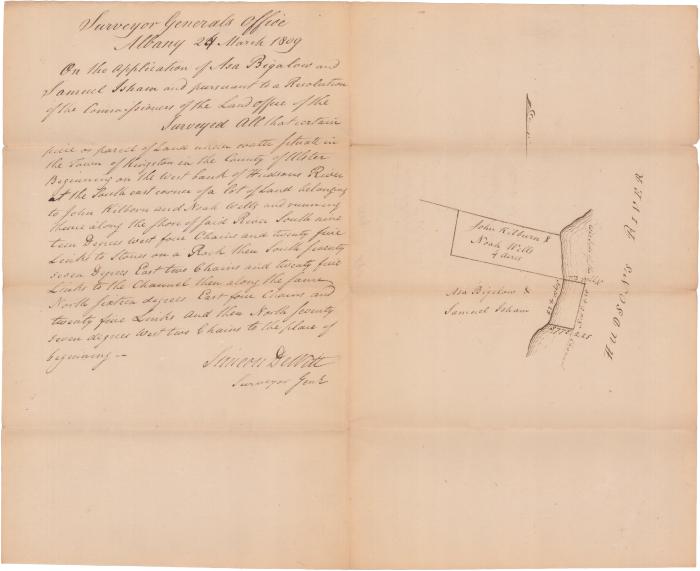 Surveyor Generals Office
Albany 24 March 1809
On the Application of Asa Bigalow and
Samuel Isham and pursuant to a Resolution
of the Commissioners of the Land office of the
Surveyed All that certain
piece or parcel of Land under water situate in
the Town of Kingston in the County of Ulster
Beginning on the West bank of Hudsons River
at the South east corner of a lot of Land belonging
to John Kilborn and Noah Wells and running
thence along the shore of said River South nine
teen Degrees West four Chains and twenty five
Links to Stones on a Rock then South seventy
seven Degrees East two Chains and twenty five
Links to the Channel then along the same
North sixteen degrees East four Chains and
twenty five Links and then North seventy
seven degrees West two Chains to the place of
beginning —
Simeon DeWitt
Surveyor Genl
John Kilburn &
Noah Wells
4 acres
Asa Bigelow &
Samuel Isham
HUDSONS RIVER